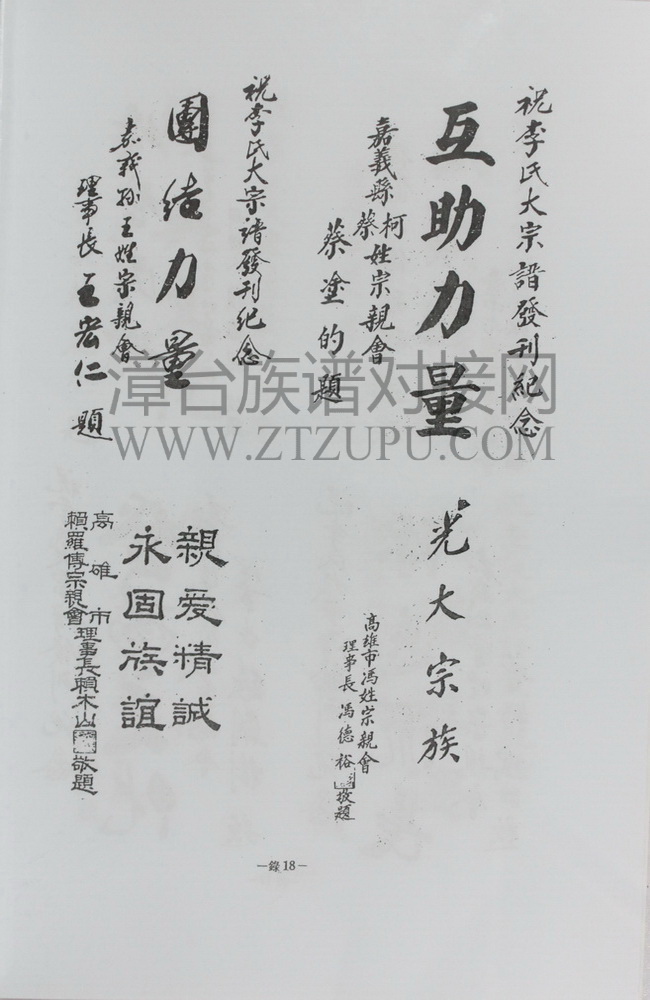 祝李氏大宗譜發刊紀念
互助力量
嘉義縣柯蔡姓宗親會
蔡塗的題
祝李氏大宗譜發刊紀念
團結力量
嘉義孫王姓宗親會
理事長王宏仁題
光大宗族
高雄市馮姓宗親會
理事長馮德裕敬題
親爱精誠
永固族誼
高雄市
賴羅傳宗親會理事長賴木山敬題
漳台族谱对接网
WWW.ZTZUPU.COM
—錄18—